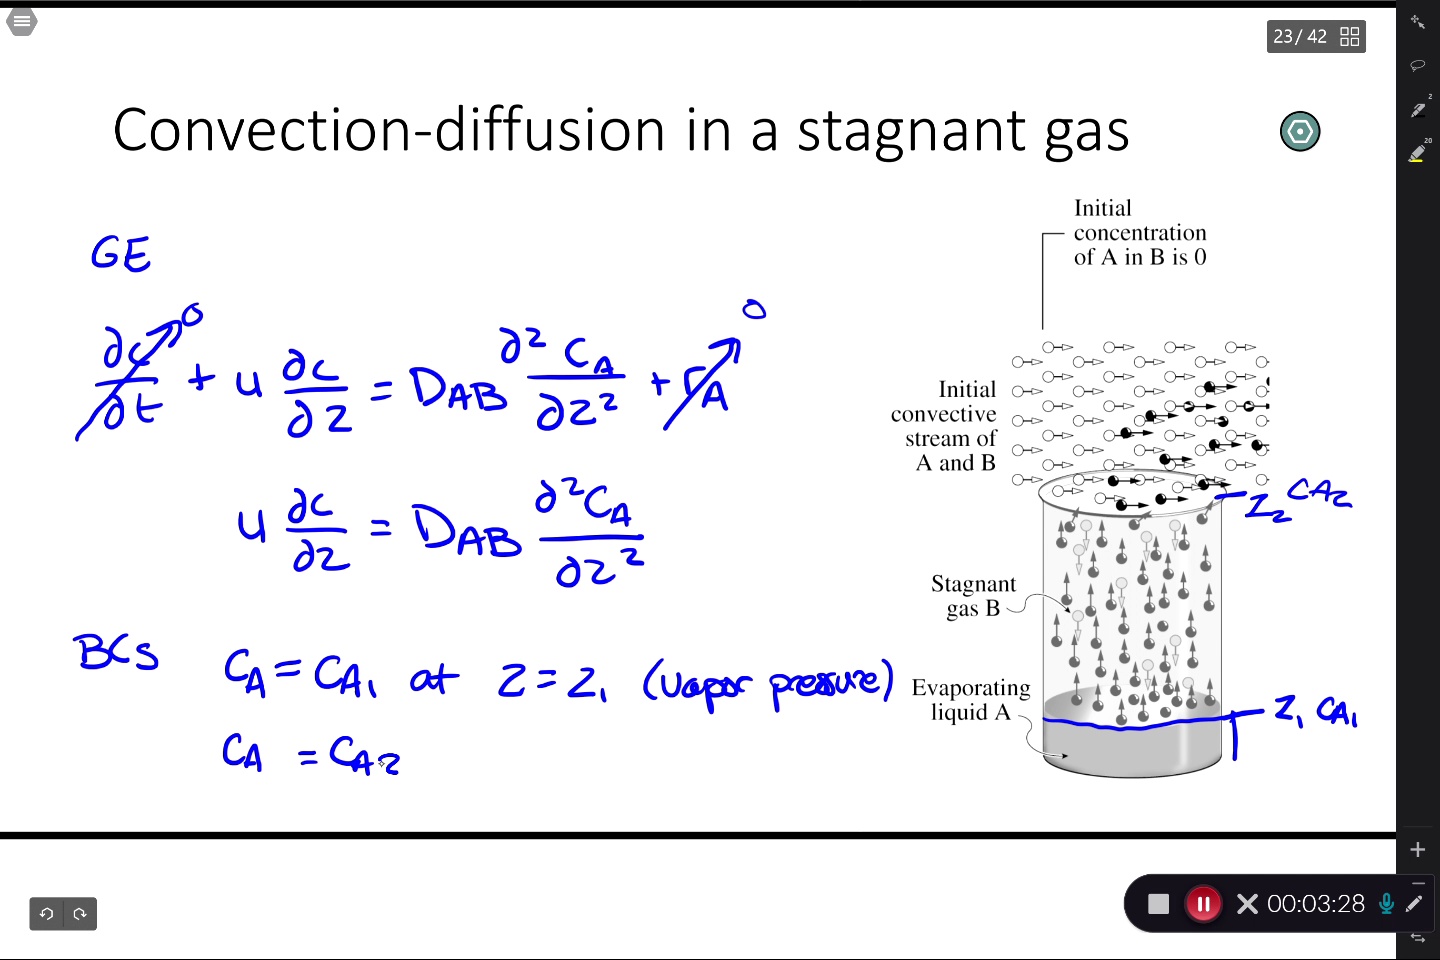 23 / 42
Convection-diffusion in a stagnant gas
GE
∂c/∂t → 0 + u ∂c/∂z = D_AB ∂²C_A/∂z² + r_A → 0
u ∂c/∂z = D_AB ∂²C_A/∂z²
BCs
C_A = C_A1 at z = z1 (vapor pressure)
C_A = C_A2
Initial
concentration
of A in B is 0
Initial
convective
stream of
A and B
Z2 CA2
Stagnant
gas B
Evaporating
liquid A
Z1 CA1
2
20
00:03:28